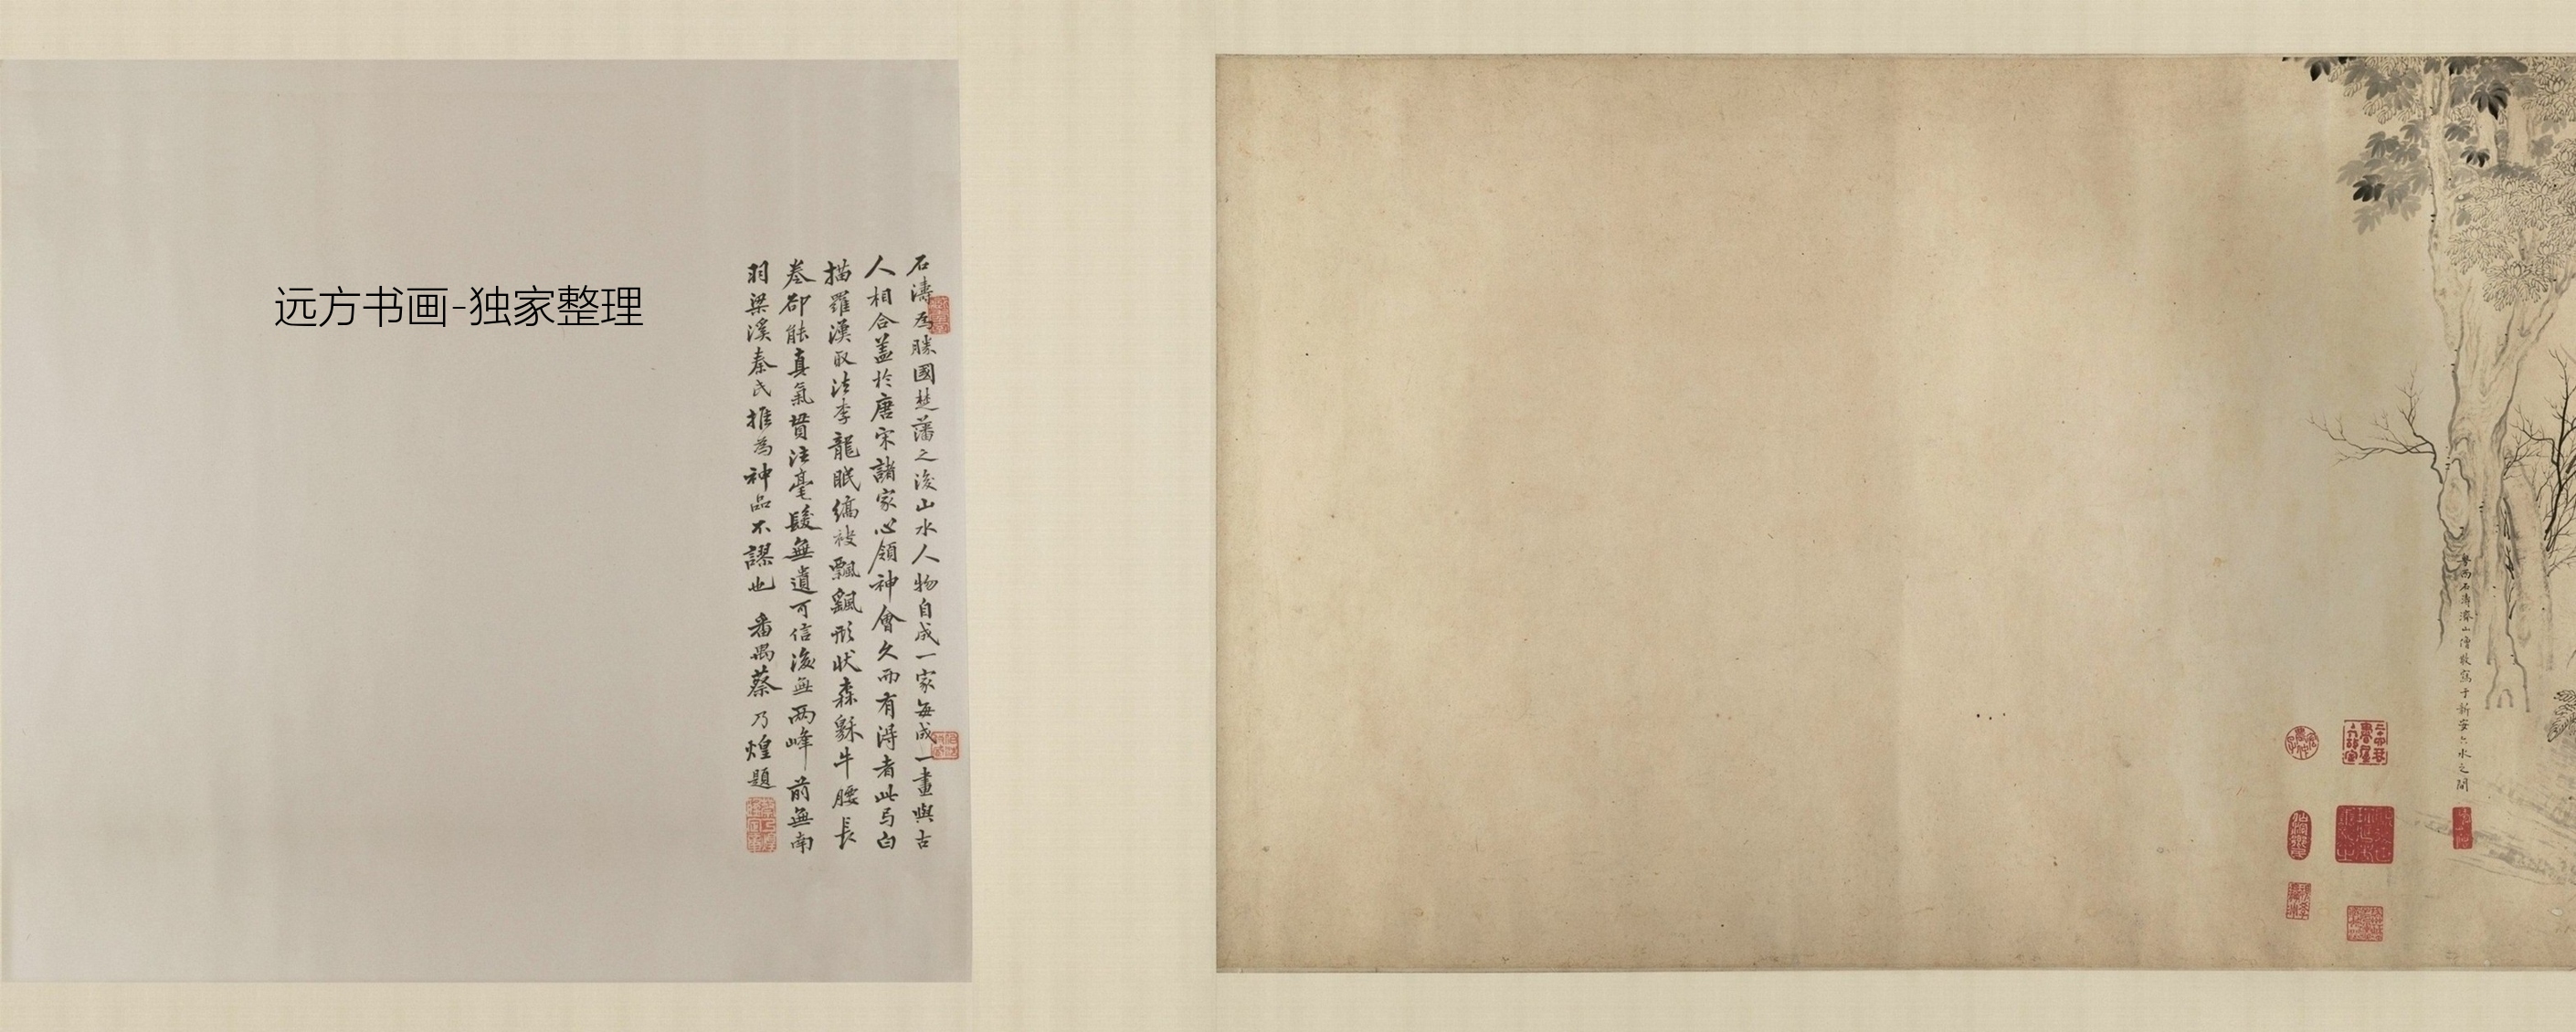 粤西石濤濟山僧敬寫于新安六水之間
石濤為勝國楚藩之後山水人物自成一家每成一畫與古
人相合蓋於唐宋諸家心領神會久而有得者此与白
描羅漢取法李龍眠縞袂飄飄形狀森黟牛腰長
卷卻能真氣貫注毫髮無遺可信後無兩峰前無南
羽梁溪秦氏推為神品不謬也 番禺蔡乃煌題
远方书画-独家整理